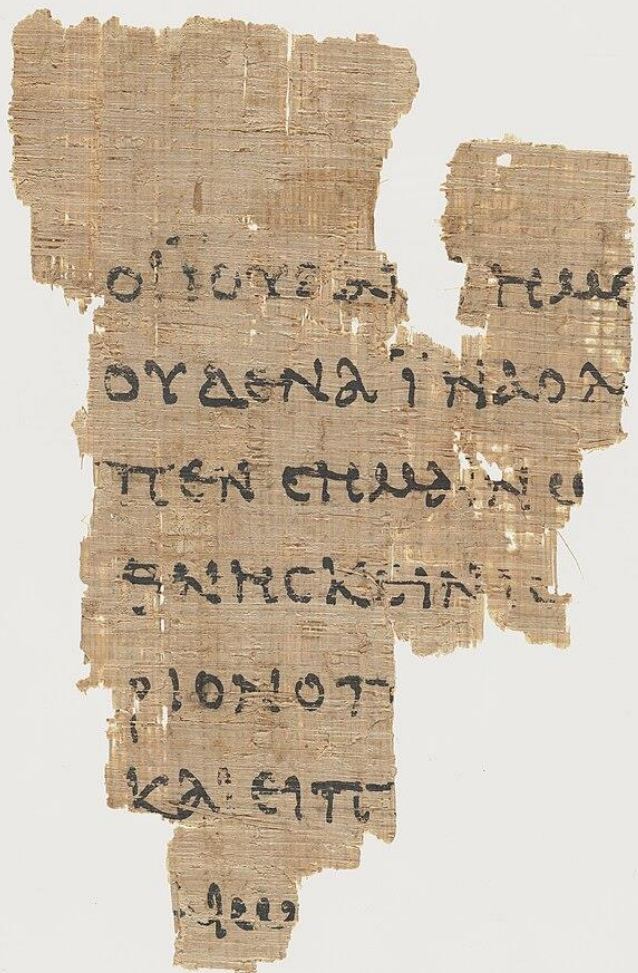 ΟΙ ΙΟΥΔΑΙ ΗΜΕ
ΟΥΔΕΝΑ ΪΝΑ Ο Λ
ΠΕΝ ϹΗΜΑΙΝΩ
ΘΝΗϹΚΕΙΝ ΙϹ
ΡΙΟΝ Ο Π
ΚΑΙ ΕΙΠ